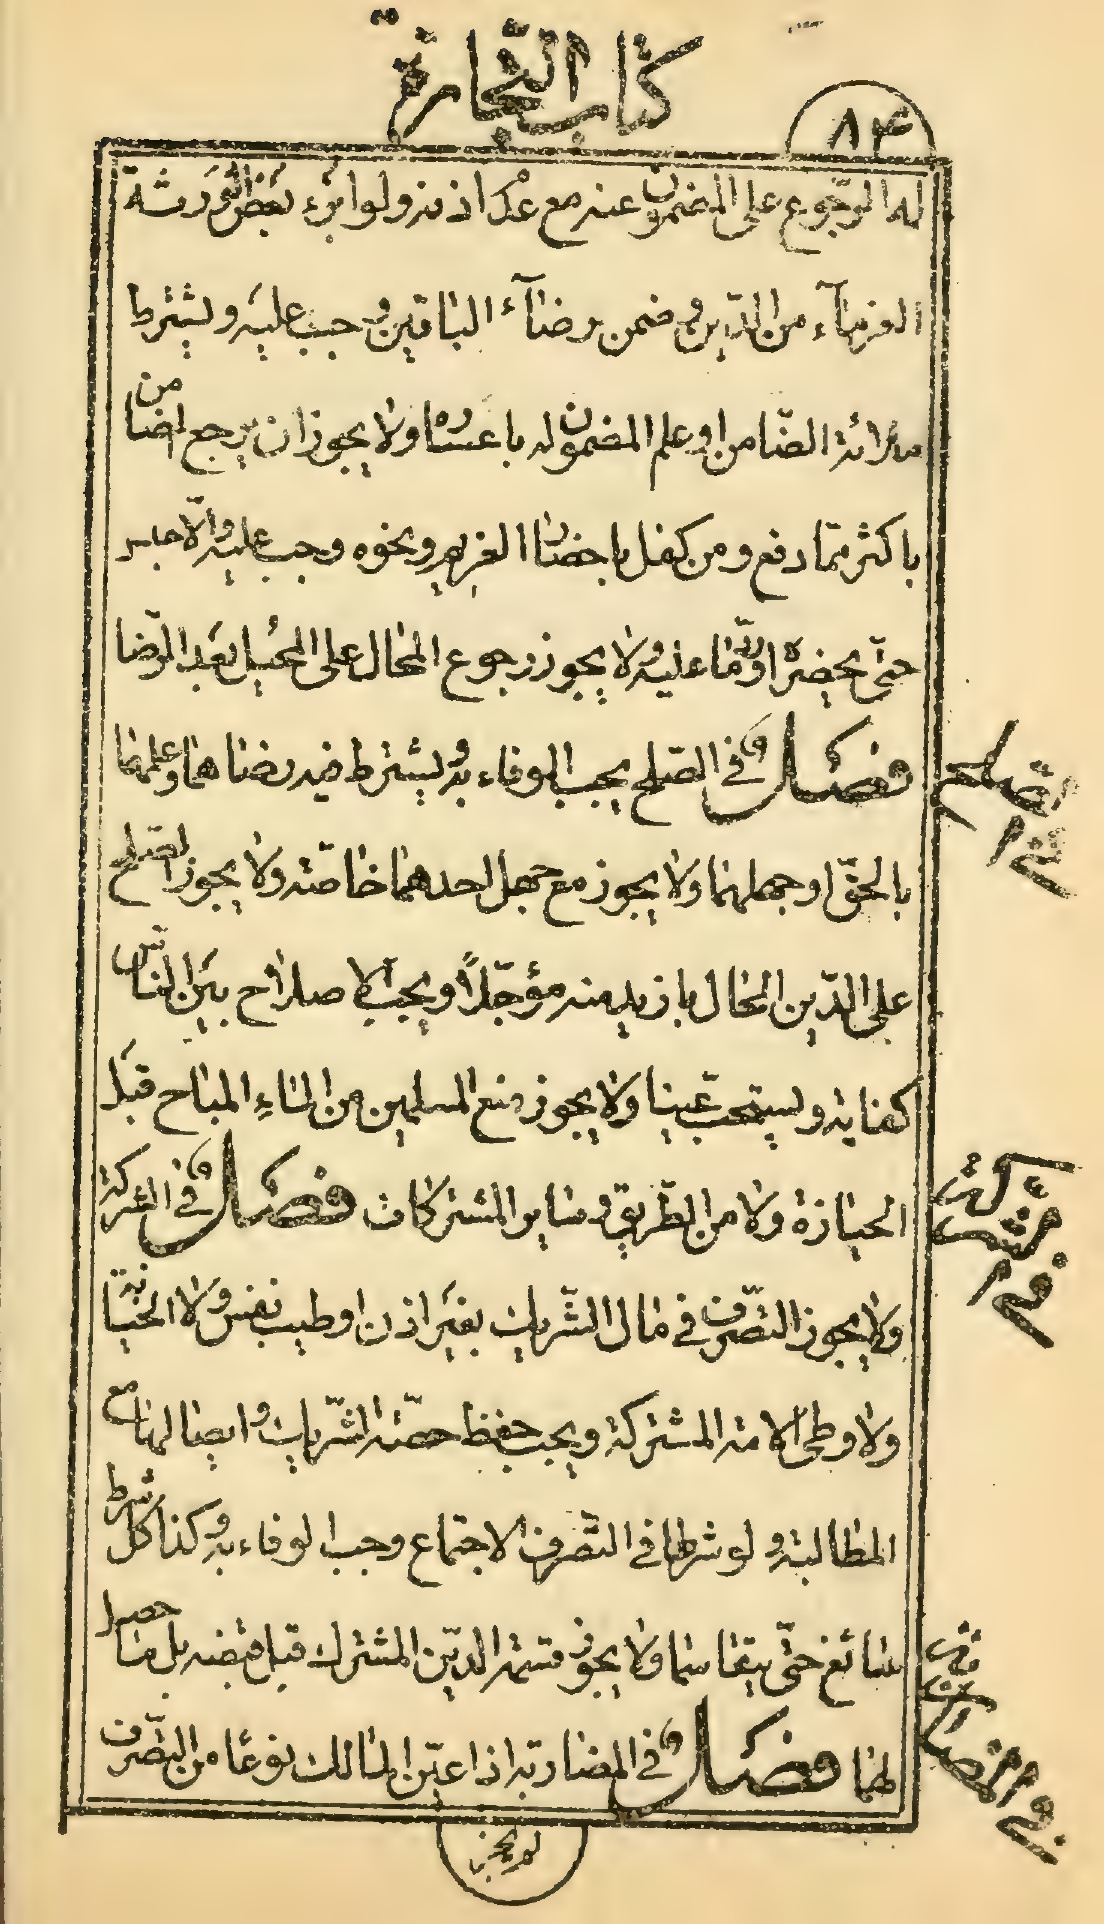 كتاب التجارة
٨۴
له الرّجوع على المضمون عنه مع عدم اذنه ولو ابرء بعض الورثة
الغرمآء من الدّين وضمن برضآء الباقين وجب عليه ويشترط
ملائة الضّامن او علم المضمون له باعساره ولا يجوز ان يرجع الضامن
باكثر ممّا دفع ومن كفل باحضار الغريم ونحوه وجب عليه والّا حبس
حتّى يحضره او يؤدّى ما عليه ولا يجوز رجوع المحال على المحيل بعد الرّضا
فصل في الصّلح يجب الوفاء به ويشترط فيه رضاهما وعلمهما
بالحقّ او جهلهما ولا يجوز مع جهل احدهما خاصّته ولا يجوز الصّلح
على الدّين الحال بازيد منه مؤجّلاً ويجب الاصلاح بين النّاس
كفاية ويستحب عينا ولا يجوز منع المسلمين من الماءِ المباح قبل
الحيازة ولا من الطّريق وساير المشتركات فصل في الشركة
ولا يجوز التصّرف في مال الشّريك بغير اذن او طيب نفس ولا الخيانة
ولا وطى الامة المشتركة ويجب حفظ حصّة الشّريك وايصالها مع
المطالبة ولو شرطا في التصّرف الاجتماع وجب الوفاء به وكذا كل شرط
سائغ حتّى يتقاسما ولا يجوز قسمة الدّين المشترك قبل قبضه بل ما حصل
لهما فصل في المضاربة اذا عيّن المالك نوعًا من التصّرف
في الصّلح
في الشركة
في المضاربة
لم يجز